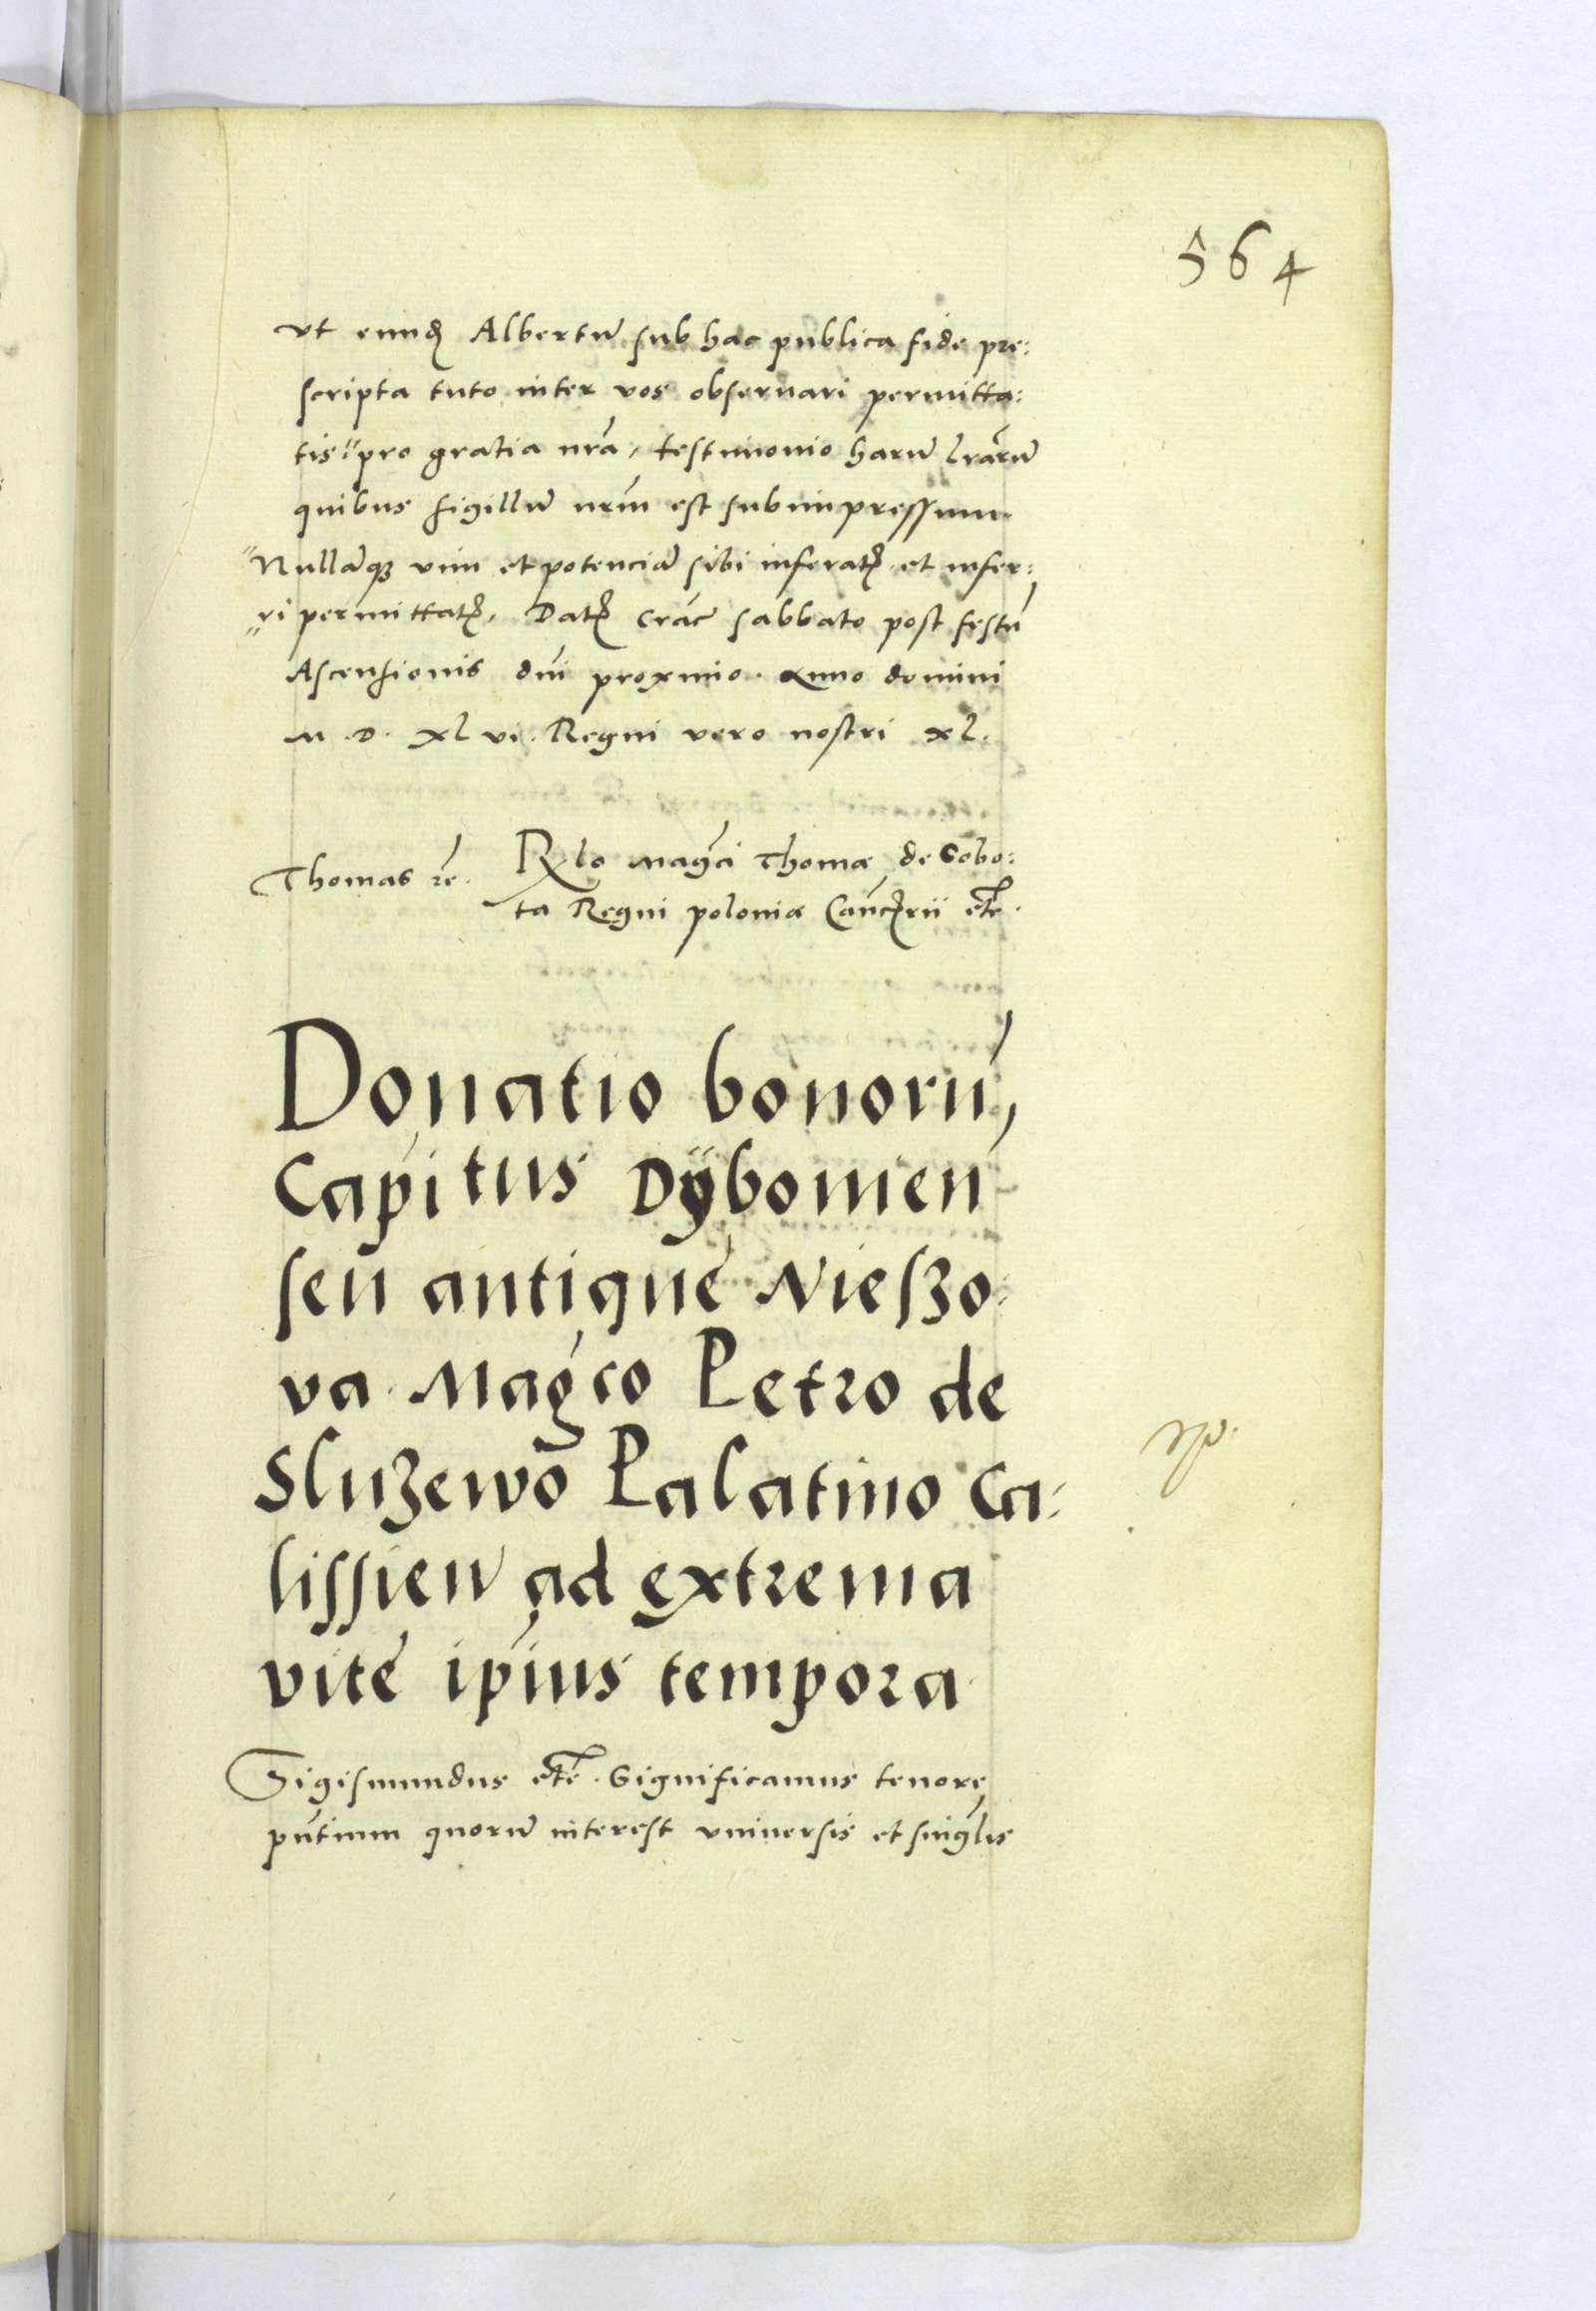 564
vt eundẽ Albertũ sub hac publica fide pre:
scripta tuto inter vos obseruari permitta:
tis " pro gratia nrã, testimonio harũ lrãrũ
quibus sigillũ nrm̃ est subimpressum
"Nullãq3 vim et potenciã sibi inferatis et infer:
"ri permittatis, Datis Crac̃ sabbato post festũ
Ascensionis dñi proximo. Anno domini
M.D. xlvi. Regni vero nostri xl.
Thomas re. Rlo Magci Thomæ de Sobo:
ta Regni poloniæ Canc̃rii etc.
Donatio bonorũ,
Capĩtus Dÿbonien
seu antique Nieszo:
va. Magco Petro de
Sluzewo Palatino Ca:
lissieñ ad extrema
vite ipĩus tempora
Sigismundus etc. Significamus tenore
pñtium quorũ interest vniuersis et singlis